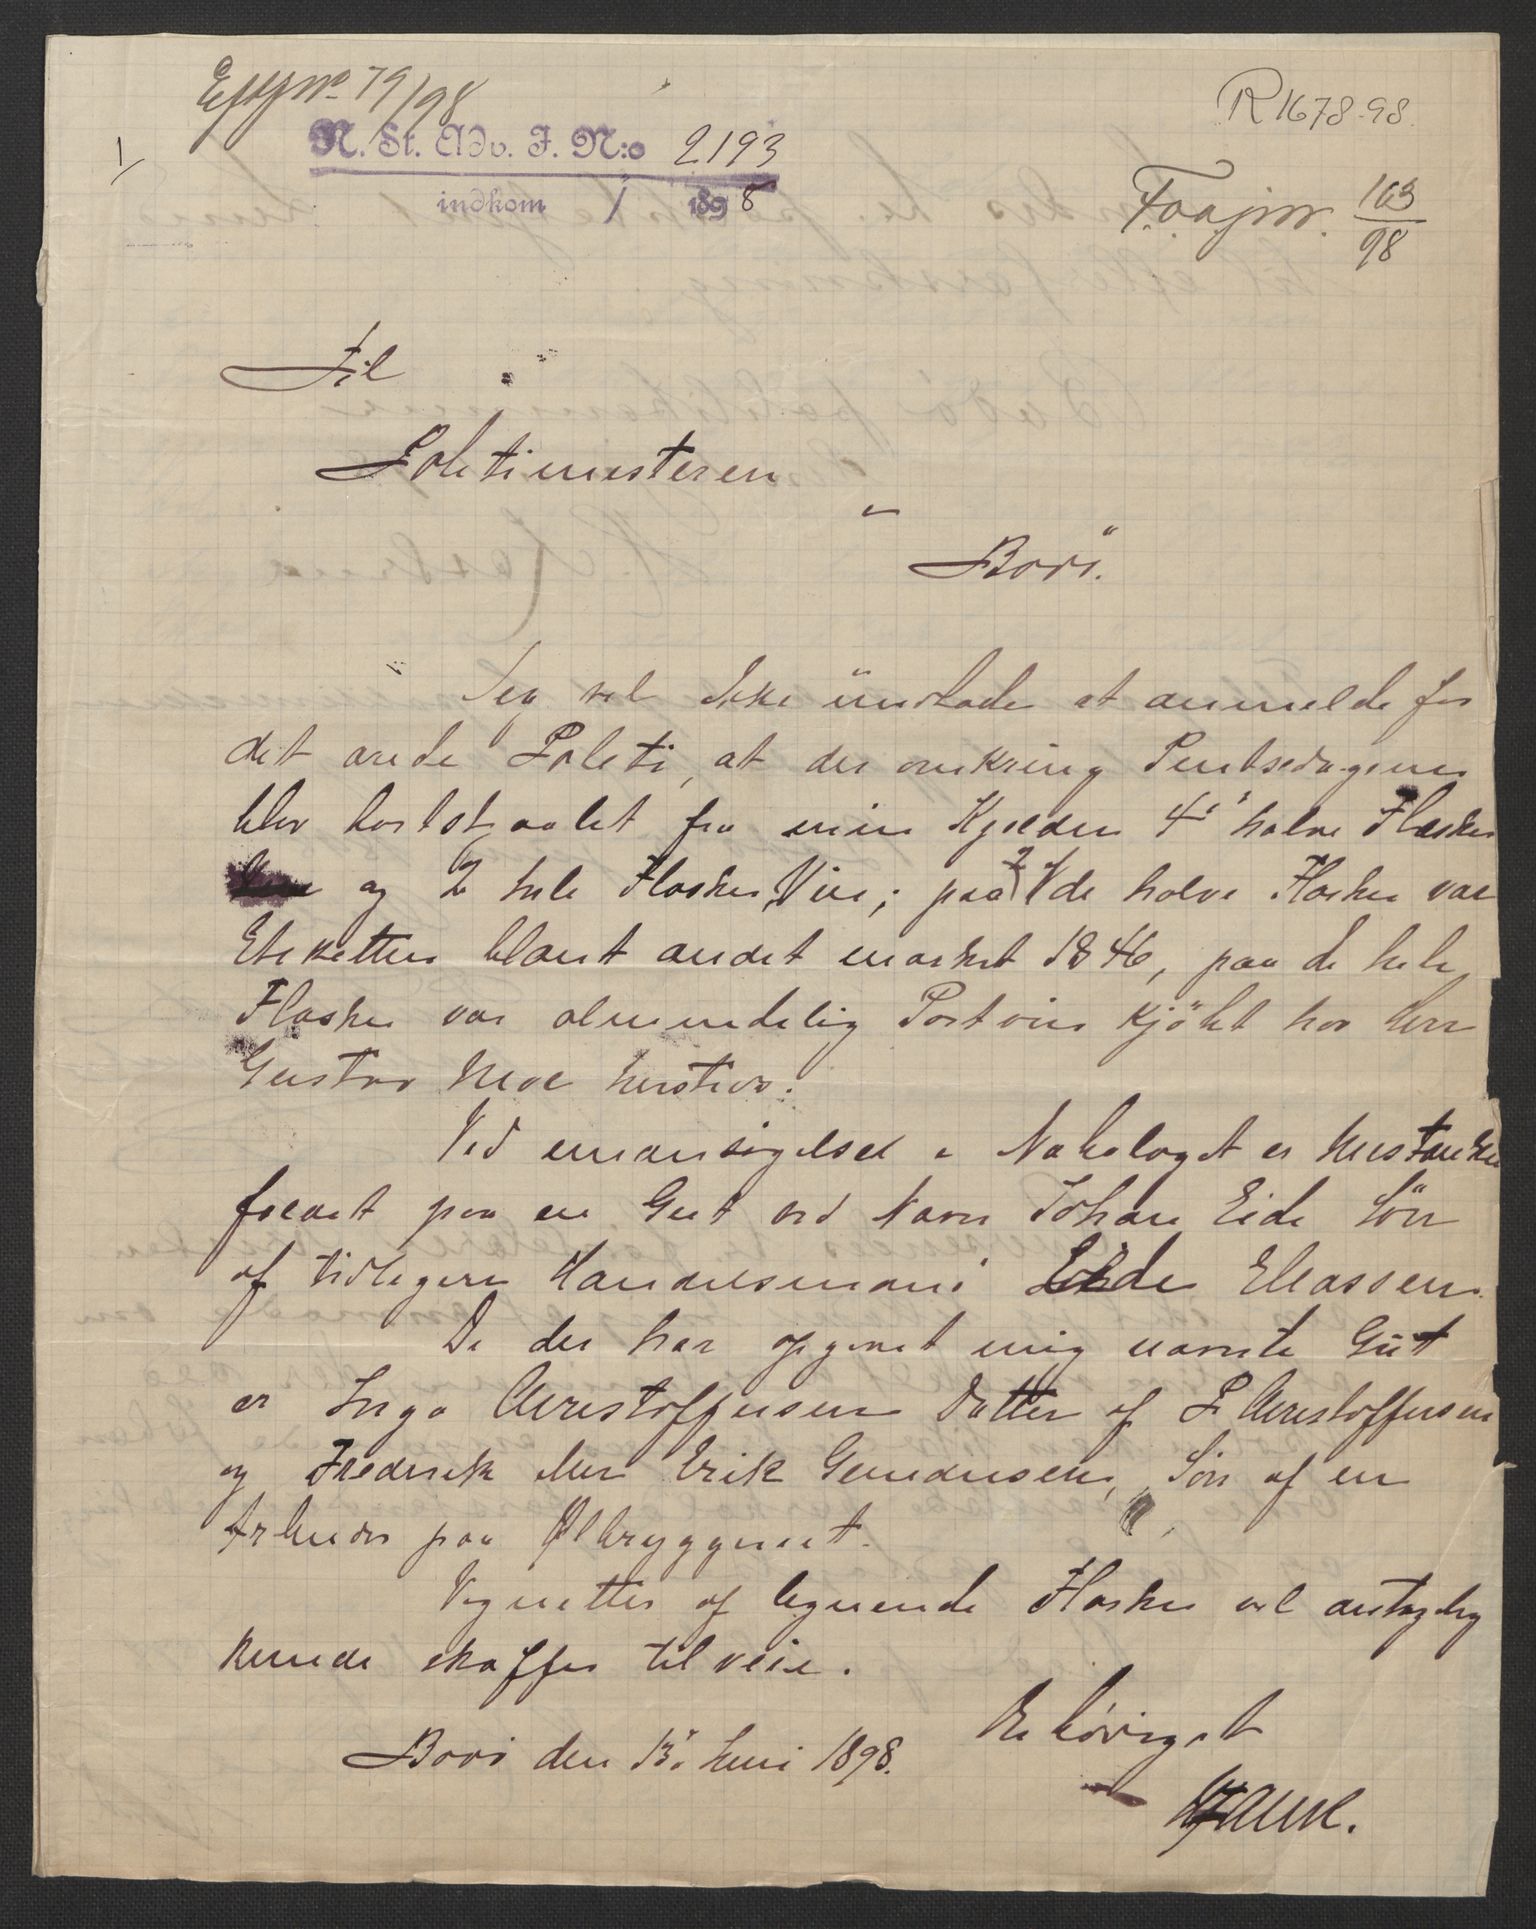 79/98
R 1678-98.
1/
N. St. Adv. J. N:o 2193
indkom / 1898
Foajnr. 103/98
Til
Politimesteren
i
Bodö.
Jeg vil ikke undlade at anmelde for
det ærede Politi, at der omkring Pintsedagene
blev bortstjaalet fra min Kjelder 4 halve Flasker
og 2 hele Flasker Vin; paa 2 de halve Flasker var
Etiketten blant andet mærket 1846, paa de hele
Flasker var almindelig Portvin kjöbt hos Herr
Gustav Moe hersteds.
Ved undersögelse i Nabolaget er Mistanken
faldt paa en Gut ved Navn Johan Eide Sön
af tidligere Handelsmand Eide Eliassen.
De der har opgivet mig nævnte Gut
er Inga Christoffersen Datter af P Christoffersen
og Frederik eller Erik Gundersen, Sön af en
Arbeider paa Ølbryggeriet.
Vignetter af lignende Flasker vil antagelig
kunde skaffes tilveie.
Bodö den 13. Juni 1898.
Ærbödigst